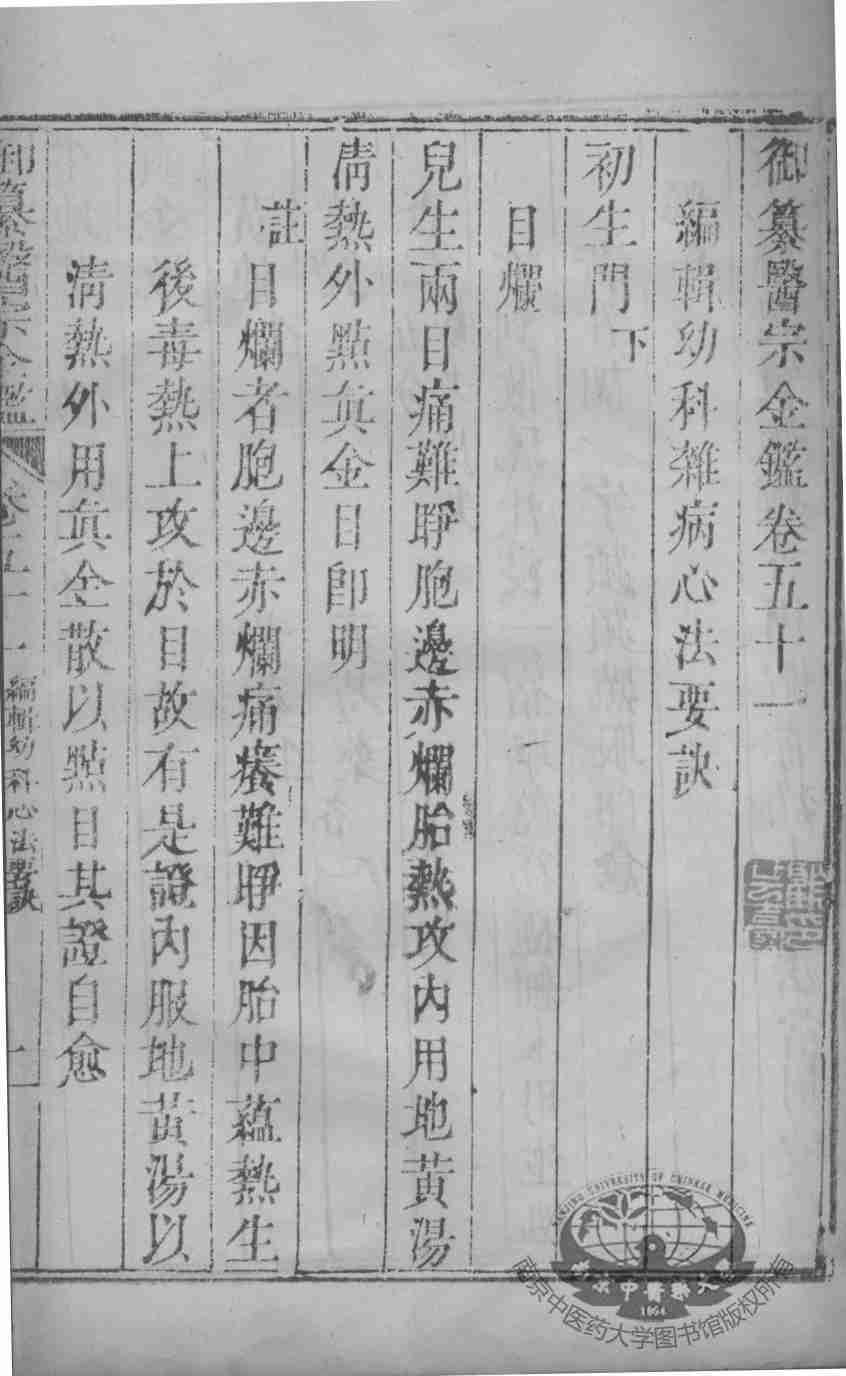 御纂醫宗金鑑卷五十一
編輯幼科雜病心法要訣
初生門下
目爛
兒生兩目痛難睜胞邊赤爛胎熱攻內用地黃湯
清熱外點眞金目卽明
註目爛者胞邊赤爛痛癢難睜因胎中蘊熱生
後毒熱上攻於目故有是證內服地黃湯以
清熱外用眞金散以點目其證自愈
御纂醫宗金鑑 卷五十一 編輯幼科心法要訣 一
NANJING UNIVERSITY OF CHINESE MEDICINE
南京中醫藥大學
1954
南京中医药大学图书馆版权所有